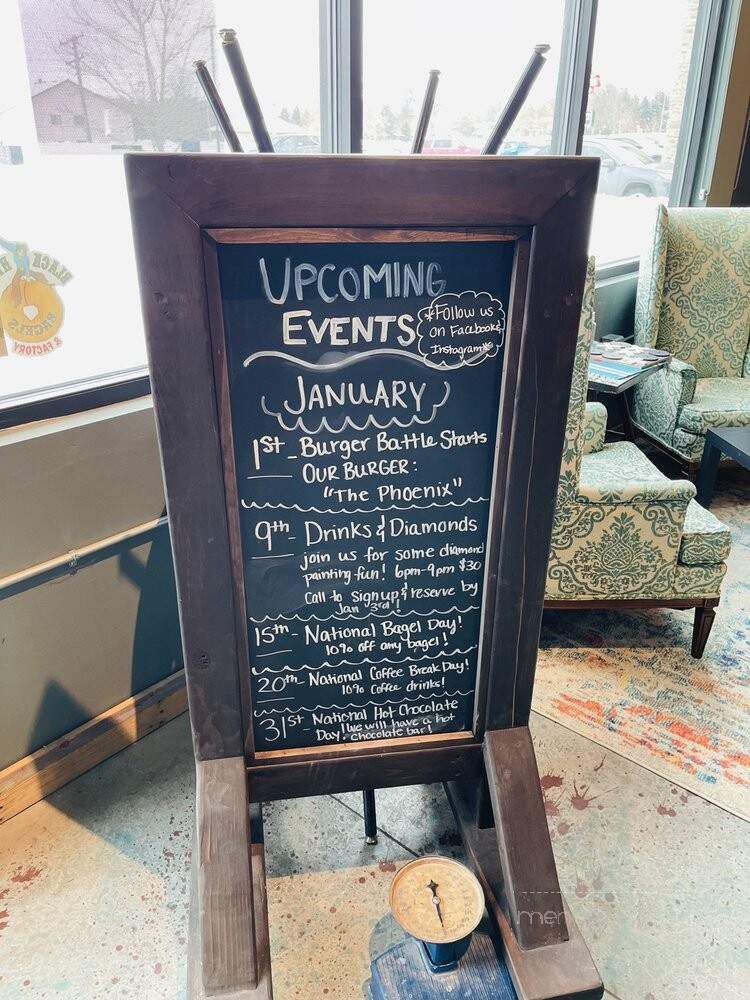 UPCOMING
EVENTS
*Follow us
on Facebook &
Instagram*
JANUARY
1st - Burger Battle Starts
OUR BURGER:
"The Phoenix"
9th - Drinks & Diamonds
join us for some diamond
painting fun! 6pm-9pm $30
Call to sign up & reserve by
Jan 3rd!
15th - National Bagel Day!
10% off any bagel!
20th - National Coffee Break Day!
10% Coffee drinks!
31st - National Hot Chocolate
Day! We will have a hot
chocolate bar!
& FACTORY